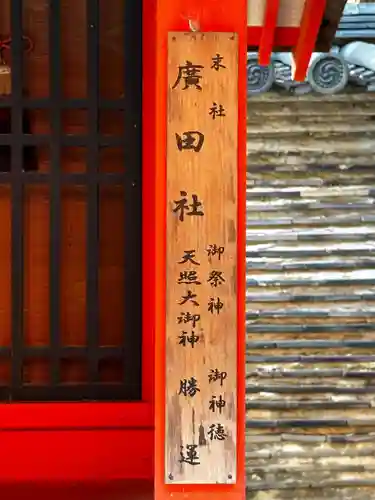 末社
廣田社
御祭神
天照大御神
御神徳
勝運